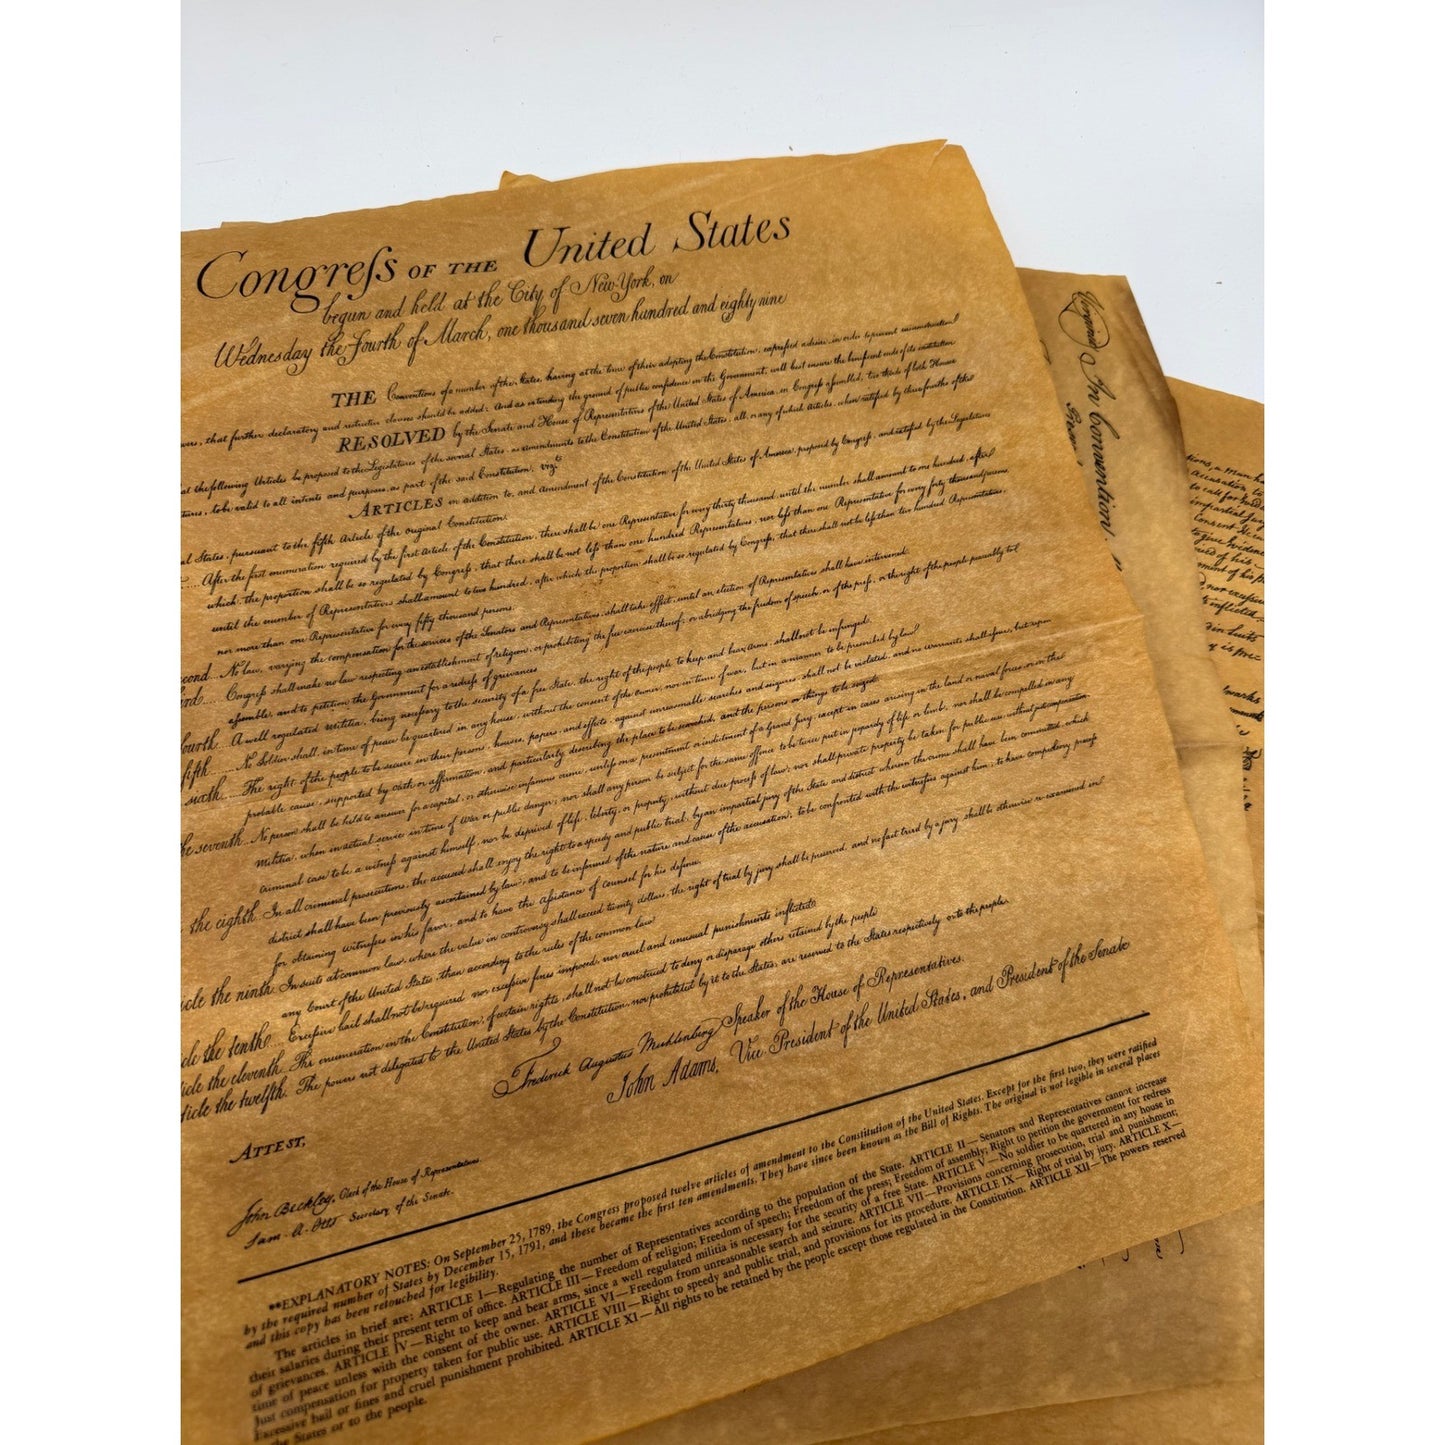 Congreſs OF THE United States
begun and held at the City of New-York, on
Wednesday the Fourth of March, one thousand seven hundred and eighty nine
THE Conventions of a number of the States, having at the time of their adopting the Constitution, expreſsed a desire, in order to prevent misconstruction
that further declaratory and restrictive clauses should be added: And as extending the ground of public confidence in the Government, will best ensure the beneficent ends of its institution
RESOLVED by the Senate and House of Representatives of the United States of America, in Congreſs aſsembled, two thirds of both Houses
the following Articles be proposed to the Legislatures of the several States, as amendments to the Constitution of the United States, all, or any of which Articles, when ratified by three fourths of the
to be valid to all intents and purposes, as part of the said Constitution; vizt
ARTICLES in addition to, and Amendment of the Constitution of the United States of America, proposed by Congreſs, and ratified by the Legislatures
States, pursuant to the fifth Article of the original Constitution.
After the first enumeration required by the first Article of the Constitution, there shall be one Representative for every thirty thousand, until the number shall amount to one hundred, after
which, the proportion shall be so regulated by Congreſs, that there shall be not leſs than one hundred Representatives, nor leſs than one Representative for every forty thousand persons
until the number of Representatives shall amount to two hundred, after which the proportion shall be so regulated by Congreſs, that there shall not be leſs than two hundred Representatives,
nor more than one Representative for every fifty thousand persons.
No law, varying the compensation for the services of the Senators and Representatives, shall take effect, until an election of Representatives shall have intervened.
Congreſs shall make no law respecting an establishment of religion, or prohibiting the free exercise thereof; or abridging the freedom of speech, or of the preſs, or the right of the people peaceably to
aſsemble, and to petition the Government for a redreſs of grievances
fourth. A well regulated militia, being neceſsary to the security of a free State, the right of the people to keep and bear arms, shall not be infringed.
fifth No Soldier shall, in time of peace be quartered in any house, without the consent of the owner, nor in time of war, but in a manner to be prescribed by law.
sixth The right of the people to be secure in their persons, houses, papers, and effects, against unreasonable searches and seizures, shall not be violated, and no warrants shall iſsue, but upon
probable cause, supported by oath or affirmation, and particularly describing the place to be searched, and the persons or things to be seized.
seventh. No person shall be held to answer for a capital, or otherwise infamous crime, unleſs on a presentment or indictment of a Grand Jury, except in cases arising in the land or naval forces or in the
Militia, when in actual service in time of War or public danger; nor shall any person be subject for the same offence to be twice put in jeopardy of life or limb, nor shall be compelled in any
criminal case to be a witneſs against himself, nor be deprived of life, liberty, or property, without due proceſs of law; nor shall private property be taken for public use without just compensation.
the eighth. In all criminal prosecutions, the accused shall enjoy the right to a speedy and public trial, by an impartial jury of the State and district wherein the crime shall have been committed, which
district shall have been previously ascertained by law, and to be informed of the nature and cause of the accusation; to be confronted with the witneſses against him; to have compulsory proceſs
for obtaining witneſses in his favor, and to have the aſsistance of counsel for his defence.
the ninth. In suits at common law, where the value in controversy shall exceed twenty dollars, the right of trial by jury shall be preserved, and no fact tried by a jury, shall be otherwise re-examined in
any Court of the United States, than according to the rules of the common law.
the tenth. Exceſsive bail shall not be required nor exceſsive fines imposed, nor cruel and unusual punishments inflicted
the eleventh. The enumeration in the Constitution, of certain rights, shall not be construed to deny or disparage others retained by the people
the twelfth. The powers not delegated to the United States by the Constitution, nor prohibited by it to the States, are reserved to the States respectively or to the people.
Frederick Augustus Muhlenberg Speaker of the House of Representatives.
John Adams, Vice President of the United States, and President of the Senate
ATTEST,
John Beckley, Clerk of the House of Representatives.
Sam. A. Otis Secretary of the Senate.
**EXPLANATORY NOTES: On September 25, 1789, the Congress proposed twelve articles of amendment to the Constitution of the United States. Except for the first two, they were ratified
by the required number of States by December 15, 1791, and these became the first ten amendments. They have since been known as the Bill of Rights. The original is not legible in several places
and this copy has been retouched for legibility.
The articles in brief are: ARTICLE I—Regulating the number of Representatives according to the population of the State. ARTICLE II—Senators and Representatives cannot increase
their salaries during their present term of office. ARTICLE III—Freedom of religion; Freedom of speech; Freedom of the press; Freedom of assembly; Right to petition the government for redress
of grievances. ARTICLE IV—Right to keep and bear arms, since a well regulated militia is necessary for the security of a free State. ARTICLE V—No soldier to be quartered in any house in
time of peace unless with the consent of the owner. ARTICLE VI—Freedom from unreasonable search and seizure. ARTICLE VII—Provisions concerning prosecution, trial and punishment;
Just compensation for property taken for public use. ARTICLE VIII—Right to speedy and public trial, and provisions for its procedure. ARTICLE IX—Right of trial by jury. ARTICLE X—
Excessive bail or fines and cruel punishment prohibited. ARTICLE XI—All rights to be retained by the people except those regulated in the Constitution. ARTICLE XII—The powers reserved
the States or to the people.
Virginia
In Convention,